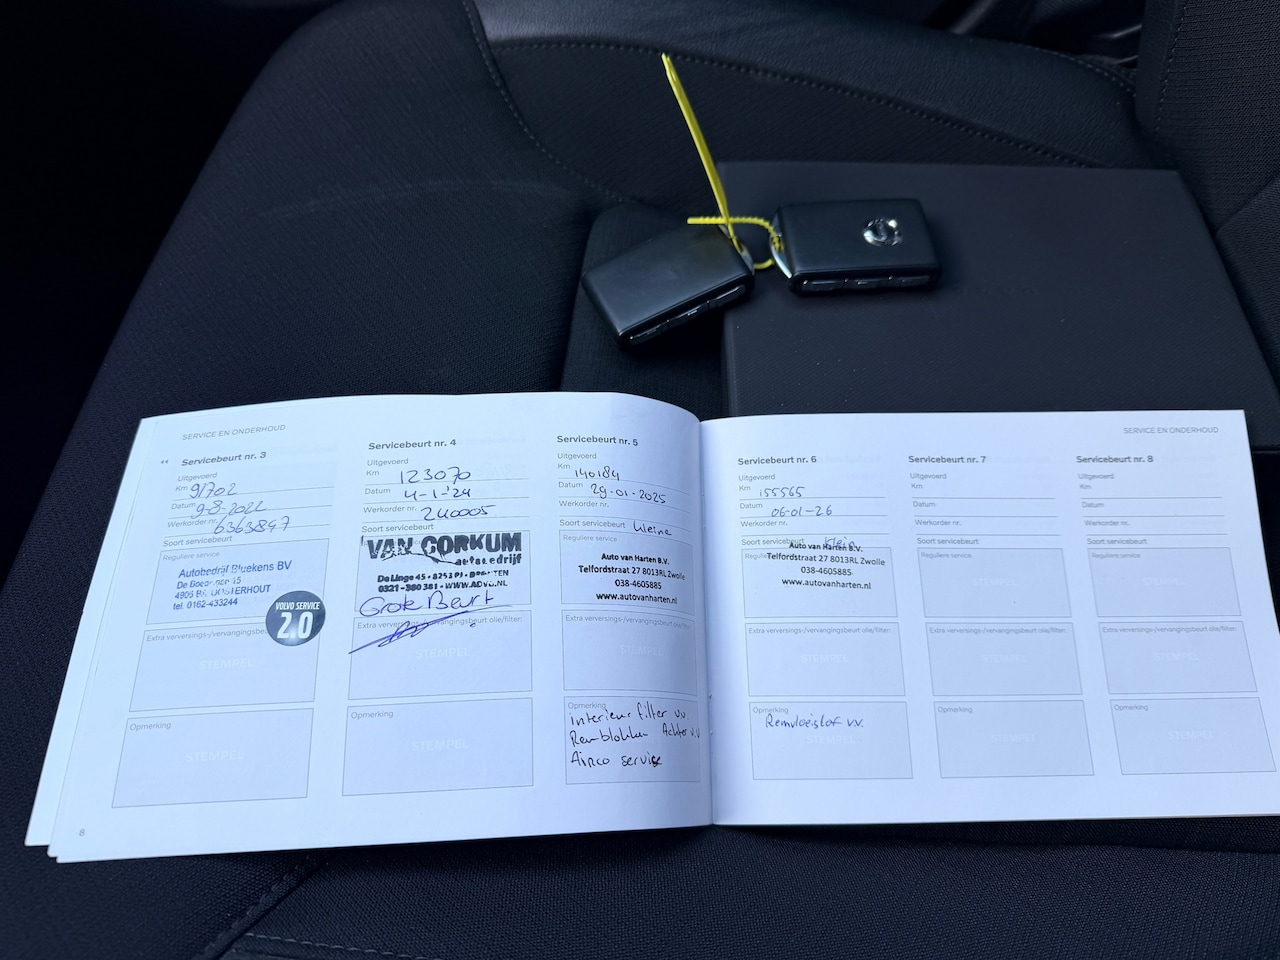 SERVICE EN ONDERHOUD
Servicebeurt nr. 3
Uitgevoerd
Km 91702
Datum 9-8-2022
Werkorder nr. 6363897
Soort servicebeurt
Reguliere service
Autobedrijf Bluekens BV
De Boedingen 15
4906 BA OOSTERHOUT
tel. 0162-433244
VOLVO SERVICE
2.0
Extra verversings-/vervangingsbeurt
STEMPEL
Opmerking
STEMPEL
8
Servicebeurt nr. 4
Uitgevoerd
Km 123070
Datum 4-1-'24
Werkorder nr. 240005
Soort servicebeurt
VAN GORKUM
autobedrijf
De Linge 45 • 8253 PJ • DRONTEN
0321-380381 • WWW.ADVG.NL
Grote Beurt
Extra verversings-/vervangingsbeurt olie/filter:
STEMPEL
Opmerking
STEMPEL
Servicebeurt nr. 5
Uitgevoerd
Km 140184
Datum 29-01-2025
Werkorder nr.
Soort servicebeurt Kleine
Reguliere service
Auto van Harten B.V.
Telfordstraat 27 8013RL Zwolle
038-4605885
www.autovanharten.nl
Extra verversings-/vervangingsbeurt olie/filter:
STEMPEL
Opmerking
Interieur filter v.v
Remblokken Achter v.v
Airco service
SERVICE EN ONDERHOUD
Servicebeurt nr. 6
Uitgevoerd
Km 155565
Datum 06-01-26
Werkorder nr.
Soort servicebeurt Klein
Auto van Harten B.V.
Telfordstraat 27 8013RL Zwolle
038-4605885
www.autovanharten.nl
Extra verversings-/vervangingsbeurt olie/filter:
STEMPEL
Opmerking
Remvloeistof v.v.
STEMPEL
Servicebeurt nr. 7
Uitgevoerd
Km
Datum
Werkorder nr.
Soort servicebeurt
Reguliere service
STEMPEL
Extra verversings-/vervangingsbeurt olie/filter:
STEMPEL
Opmerking
STEMPEL
Servicebeurt nr. 8
Uitgevoerd
Km
Datum
Werkorder nr.
Soort servicebeurt
Reguliere service
STEMPEL
Extra verversings-/vervangingsbeurt olie/filter:
STEMPEL
Opmerking
STEMPEL